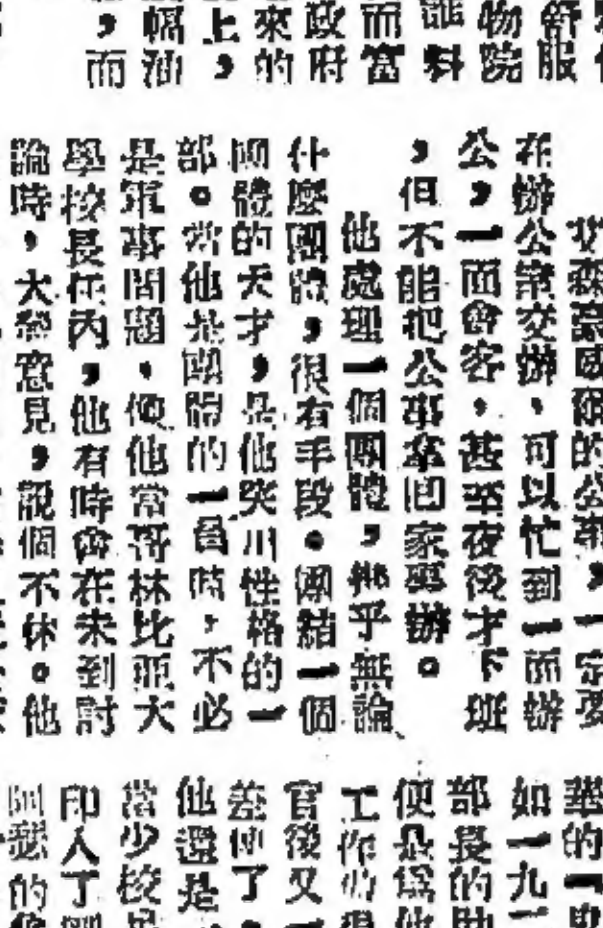 舒服
物院
誰料
而當
政府
來的
上，
幅油
，而
艾森豪威爾的公事，一定要
在辦公室交辦，可以忙到一面辦
公，一面會客，甚至夜後才下班
，但不能把公事拿回家裏辦。
他處理一個團體，幾乎無論
什麼團體，很有手段。團結一個
團體的天才，是他突出性格的一
部。當他是團體的一員時，不必
是軍事問題，便他當哥林比亞大
學校長任內，他有時會在未到討
論時，大發意見，說個不休。他
華的一
如一九二
部長的助
便是為他
工作的
官後又一
差使了，
他還是
當少校
印人了
的